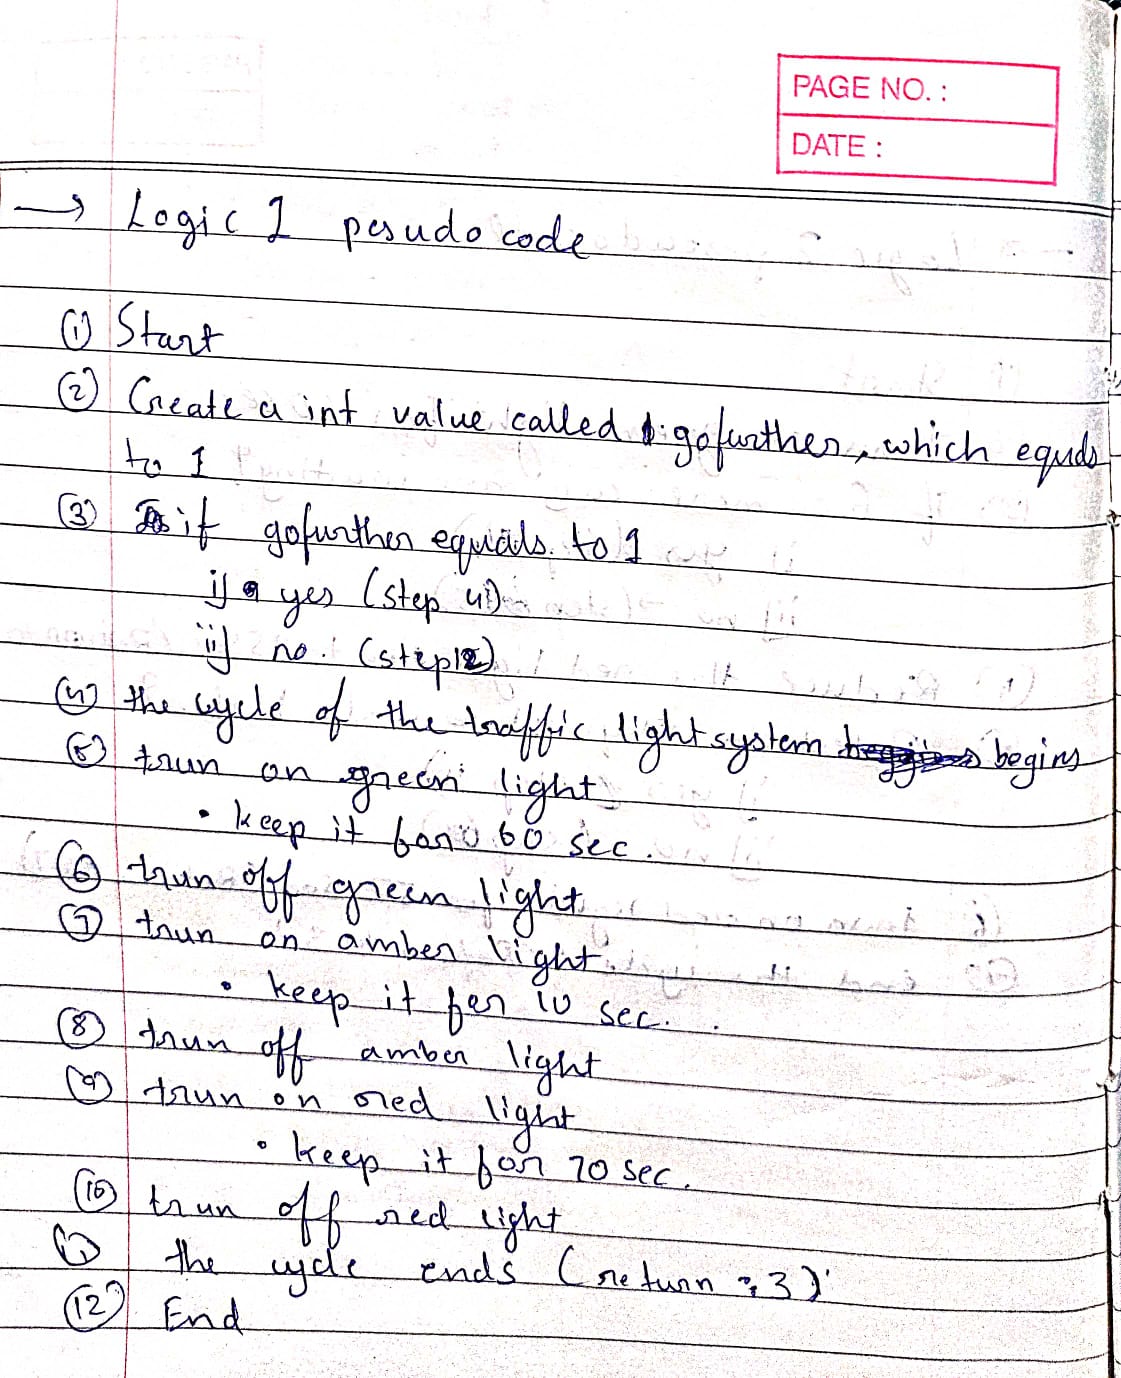 PAGE NO. :
DATE :
→ Logic 1 pesudo code
① Start
② Create a int value called gofurther, which equals
to 1
③ if gofurther equals to 1
i) yes (step 4)
ii) no. (step 12)
④ the cycle of the traffic light system begins
⑤ trun on green light
• keep it for 60 sec.
⑥ trun off green light
⑦ trun on amber light
• keep it for 10 sec.
⑧ trun off amber light
⑨ trun on red light
• keep it for 70 sec.
⑩ trun off red light
⑪ the cycle ends (return 3)
⑫ End